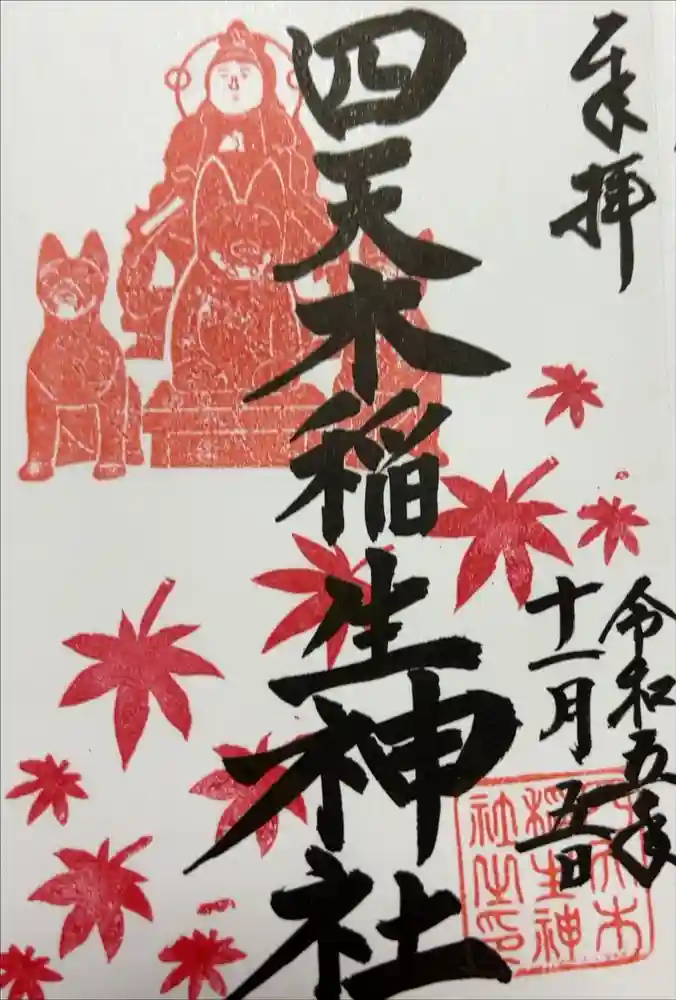 奉拝
四天木稲生神社
令和五年
十一月五日
四天木
稲生神
社之印